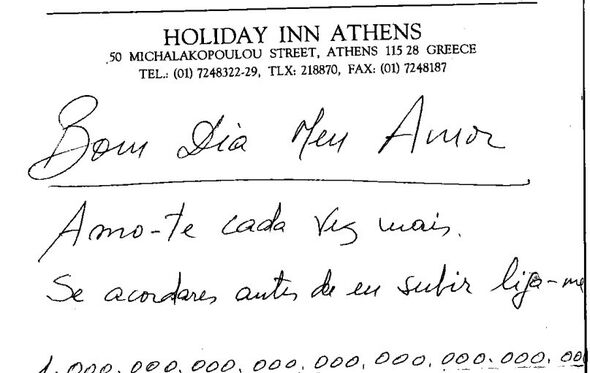 HOLIDAY INN ATHENS
50 MICHALAKOPOULOU STREET, ATHENS 115 28 GREECE
TEL.: (01) 7248322-29, TLX: 218870, FAX: (01) 7248187
Bom Dia Meu Amor
Amo-te cada vez mais.
Se acordares antes de eu subir liga-me
1.000.000.000.000.000.000.000.000.000